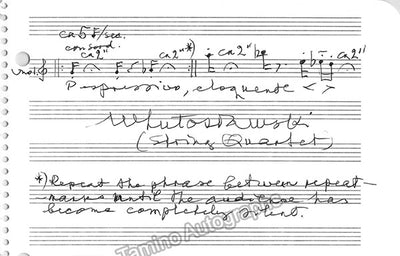 ca 5 ♪/sec.
con sord.
ca 2" ca 2" *) ca 2" ca 2"
Vno I
espressivo, eloquente < >
WLutosławski
(String Quartet)
*) Repeat the phrase between repeat-
marks until the audience has
become completely silent.
Tamino Autographs